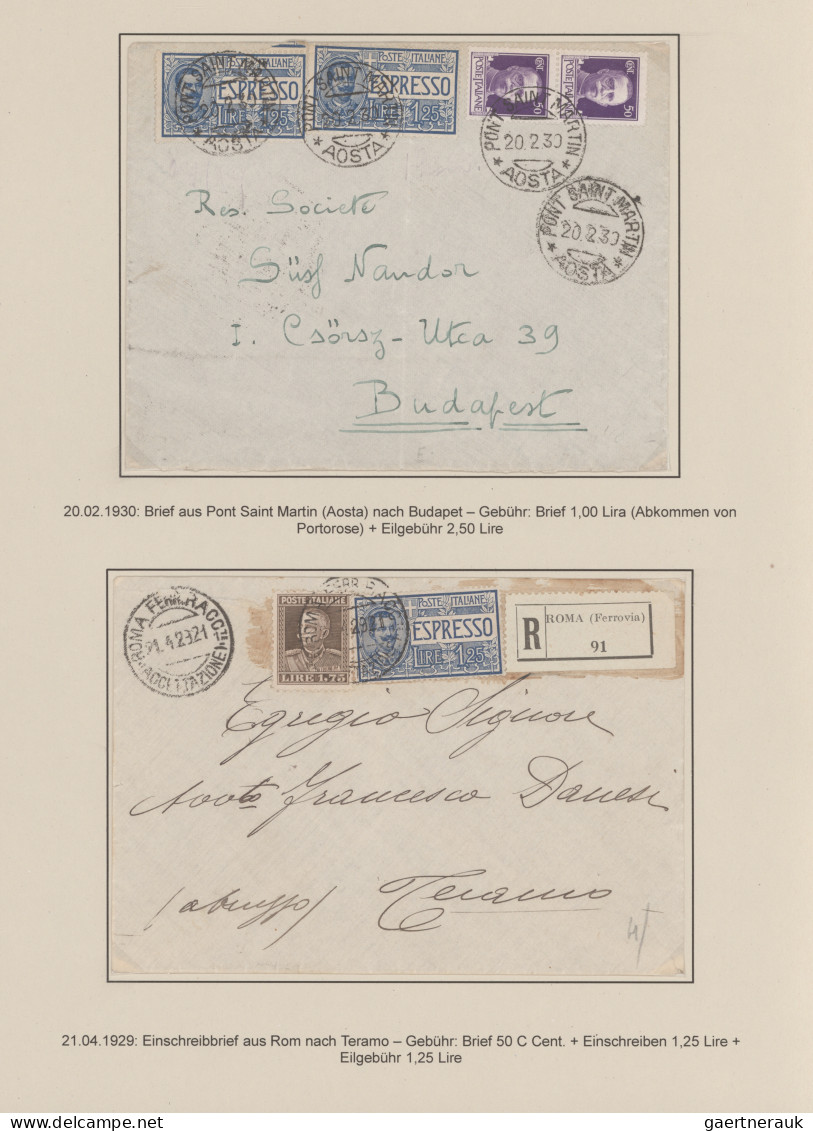 POSTE ITALIANE
ESPRESSO
LIRE 1,25
POSTE ITALIANE
ESPRESSO
LIRE 1,25
POSTE ITALIANE
50
POSTE ITALIANE
50
PONT SAINT MARTIN
* AOSTA *
PONT SAINT MARTIN
* AOSTA *
PONT SAINT MARTIN
20.2.30
* AOSTA *
PONT SAINT MARTIN
20.2.30
* AOSTA *
Res. Societé
Nandor
I. Csörsz-Utca 39
Budapest
20.02.1930: Brief aus Pont Saint Martin (Aosta) nach Budapet – Gebühr: Brief 1,00 Lira (Abkommen von
Portorose) + Eilgebühr 2,50 Lire
POSTE ITALIANE
LIRE 1.75
POSTE ITALIANE
ESPRESSO
LIRE 1,25
R
ROMA (Ferrovia)
91
Egregio Signore
Avv.to Francesco Danesi
(abruzzo) Teramo
21.04.1929: Einschreibbrief aus Rom nach Teramo – Gebühr: Brief 50 C Cent. + Einschreiben 1,25 Lire +
Eilgebühr 1,25 Lire
gaertnerauk / delcampe.net